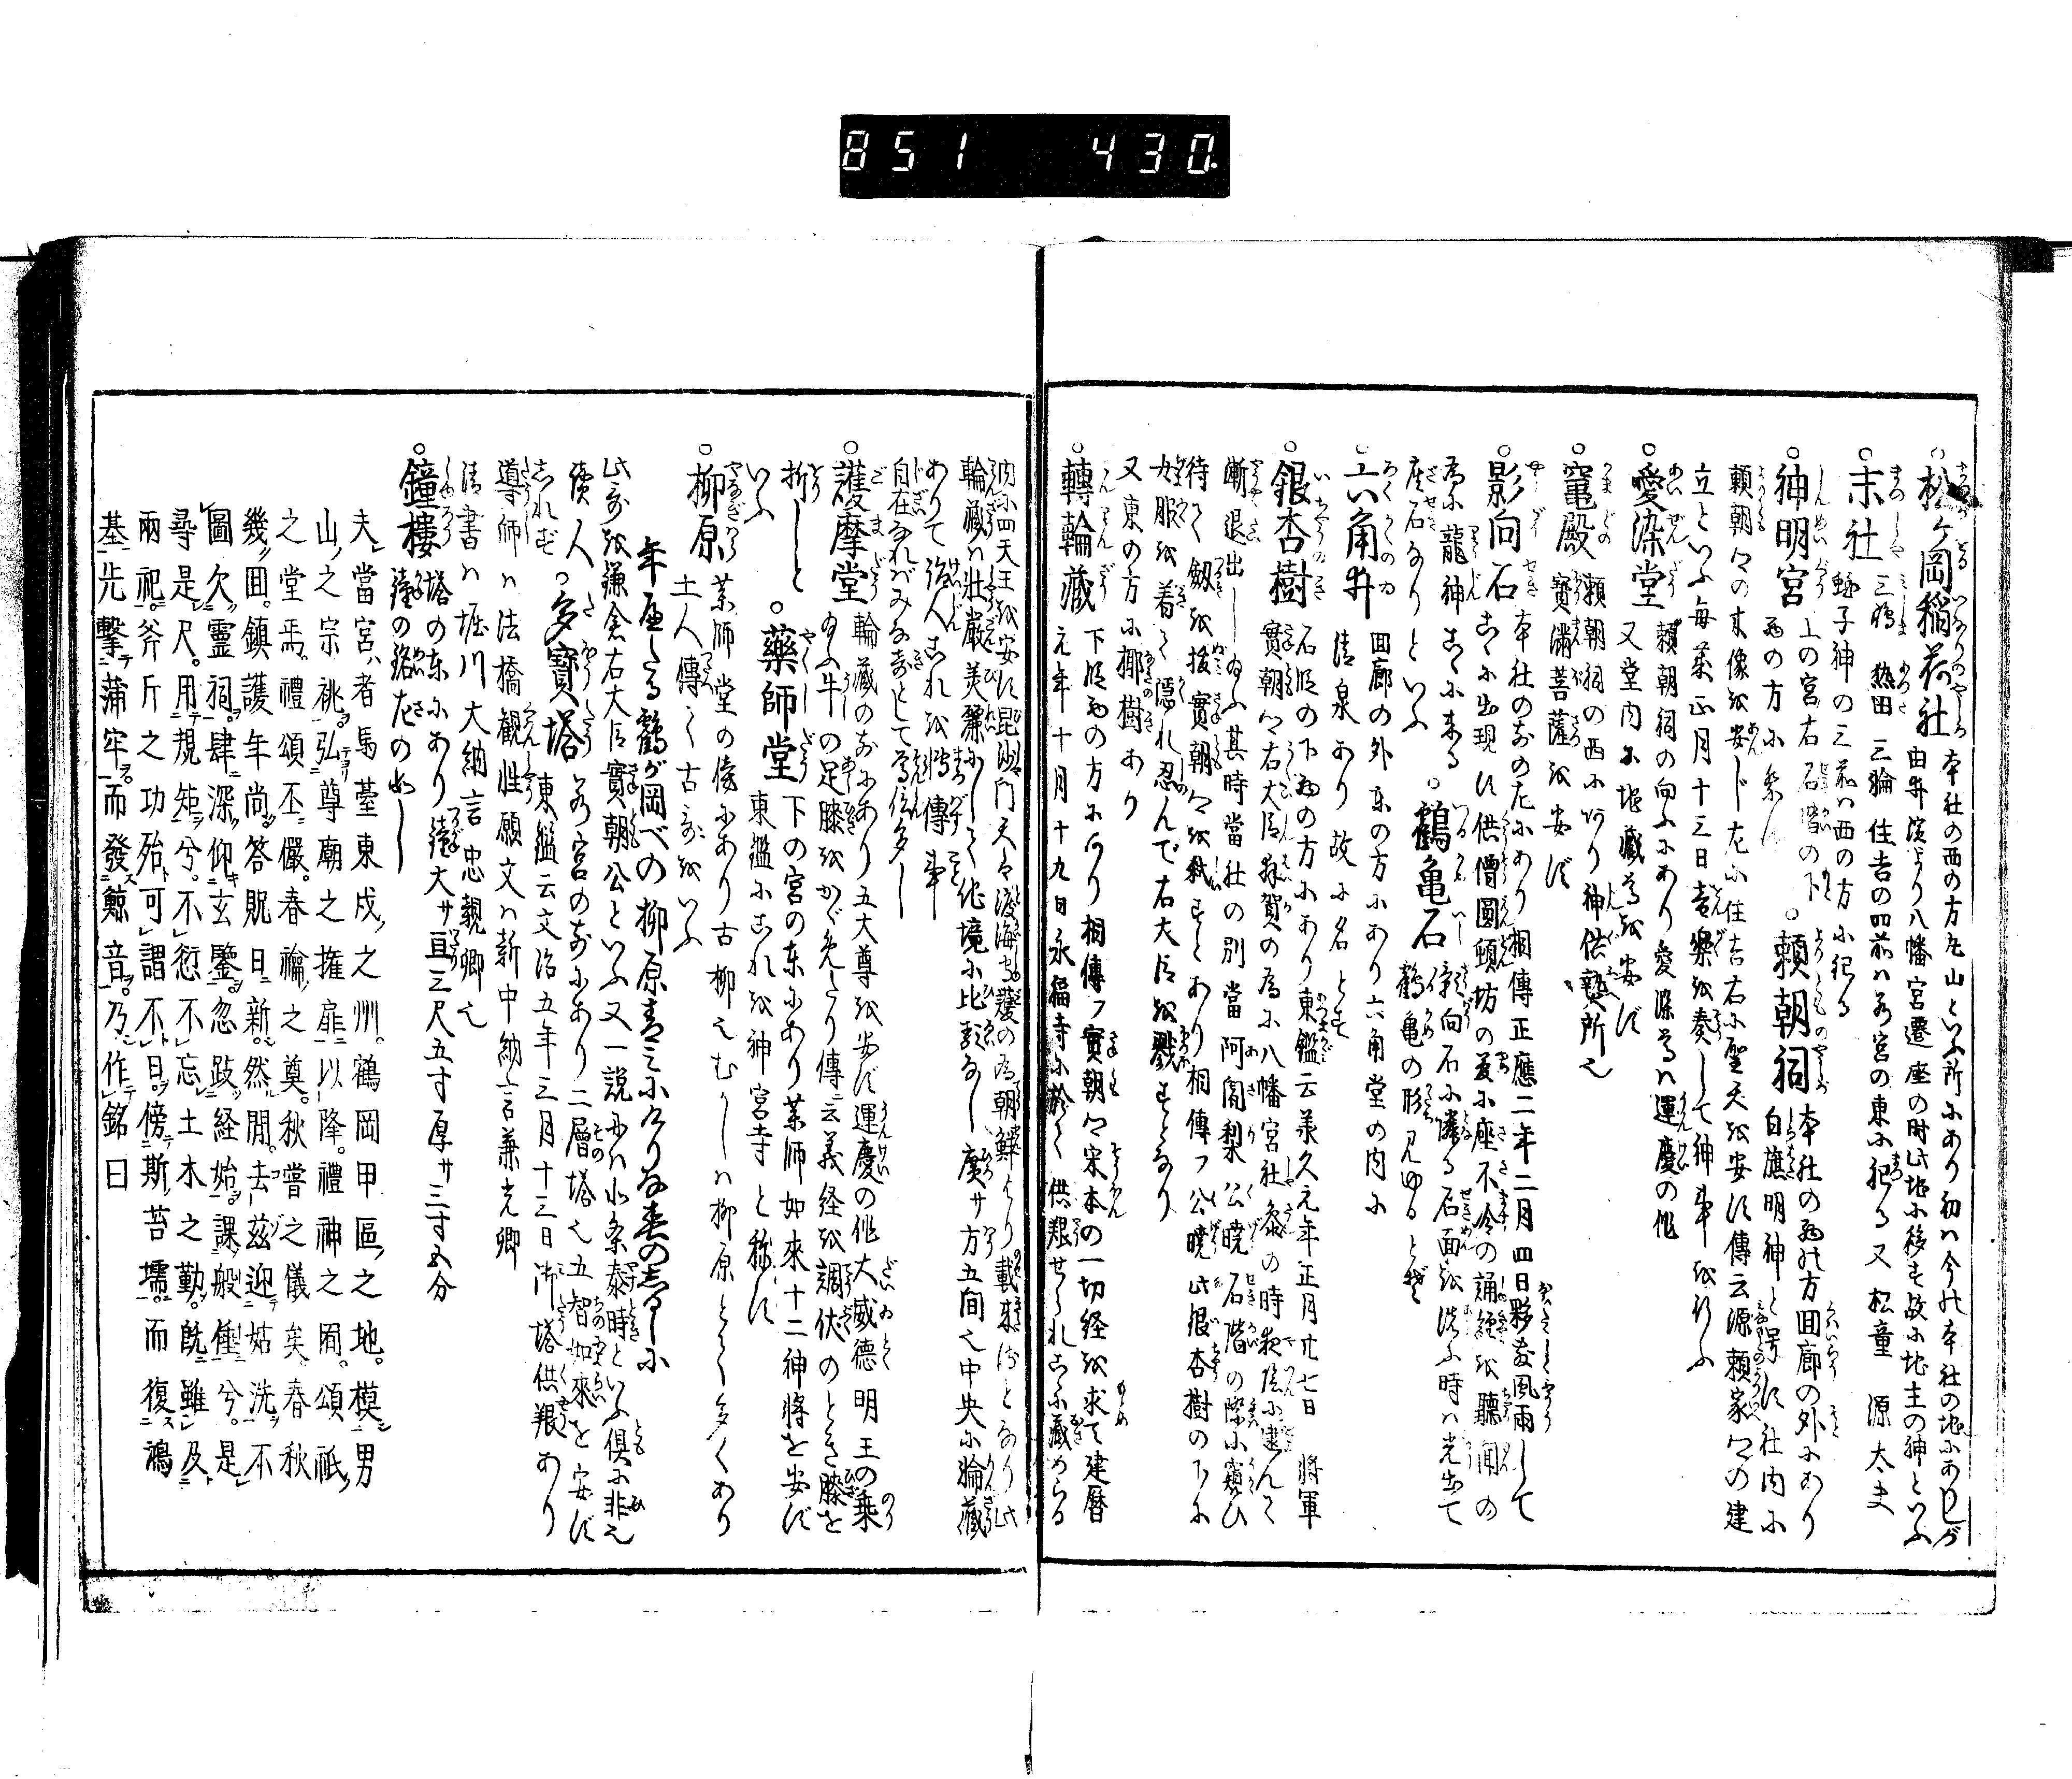 851 430
○松ヶ岡稲荷社 本社の西の方丸山といふ所にあり初ハ今の本社の地にありしが
由井濱より八幡宮遷座の時此地に移す故に地主の神といふ
○末社 三嶋 熱田 三輪 住吉の四前ハ若宮の東に祀る又松童 源太夫
蛭子神の三前ハ西の方に祀る
○神明宮 上の宮右石階の下 西の方に
○頼朝祠 本社の西の方回廊の外にあり
白旗明神と号す社内に
頼朝公の木像を安じ左に住吉右に聖天を安ず傳云源頼家公の建
立といふ毎歳正月十三日音樂を奏して神事を行ふ
○愛染堂 頼朝祠の向ふにあり愛染尊ハ運慶の作
又堂内に地蔵尊を安ず
○竃殿 頼朝祠の西にあり神供 所也
寳満菩薩を安ず
○影向石 本社の前の左にあり相傳正應二年二月四日夥敷風雨して
こゝに出現す供僧圓頓坊の 座不冷の誦経を聽聞の
為に龍神こゝに来る
座石なりといふ
○鶴亀石 影向石に隣る石面を洗ふ時ハ光出て
鶴亀の形見ゆるとぞ
○六角井 回廊の外東の方にあり六角堂の内に
清泉あり故に名とす
○銀杏樹 石階の下西の方にあり東鑑云承久元年正月廿七日 将軍
實朝公右大臣拝賀の為に八幡宮社参の時夜陰に逮んで
漸退出し給ふ其時當社の別當阿闍梨公暁石階の際に窺ひ
待て剱を抜實朝公を弑すとあり相傳フ公暁此銀杏樹の下に
女服を着て隠れ忍んで右大臣を戮すとなり
又東の方に梛樹あり
○轉輪蔵 下段西の方にあり相傳フ實朝公宋本の一切経を求て建暦
元年十月十九日永福寺に於て供羪せられこゝに蔵めらる
内に四天王を安ず毘沙門天ハ渡海守護の為朝鮮より載来るとなり此
輪蔵ハ壮厳美麗にして他境に比類なし廣サ方五間也中央に輪蔵
ありて 人これを轉傳事
自在なれバみな奇として 多し
○護摩堂 輪蔵の前にあり五大尊を安ず運慶の作大威德明王の乗
給ふ牛の足膝をかゞめたり傳云義経を調伏のとき膝を
折しと
いふ
○藥師堂 下の宮の東にあり薬師如来十二神将を安ず
東鑑にこれを神宮寺と稱す
○柳原 薬師堂の傍にあり古柳也むかしハ柳原とて多くあり
土人傳て古哥をいふ
年 たる鶴が岡べの柳原青みにけりな春のしるしに
此哥を鎌倉右大臣實朝公といふ又一説にハ北条泰時といふ倶に非也
読人
しれず
○多寳塔 若宮の前にあり二層の塔也五智如來を安ず
東鑑云文治五年三月十三日御塔供羪あり
導師ハ法橋観性願文ハ新中納言兼光卿
清書ハ堀川大納言忠親卿也
○鐘樓 塔の東にあり鐘大サ亘三尺五寸厚サ三寸五分
鐘の銘左の如し
夫當宮ハ者馬臺東成之州鶴岡甲區之地模男
山之宗祧弘尊廟之權扉以降禮神之囿頌祇
之堂焉禮頌丕儼春禴之奠秋嘗之儀矣春秋
幾回鎮護年尚答貺日新然間去茲迎姑洗不
圖欠靈祠肆深仰玄鑒忽跂経始課般倕兮是
尋是尺用規矩兮不愆不忘土木之勤既雖及
兩祀斧斤之功殆可謂不日傍斯苔壖而復鴻
基先撃蒲牢而發鯨音乃作銘曰